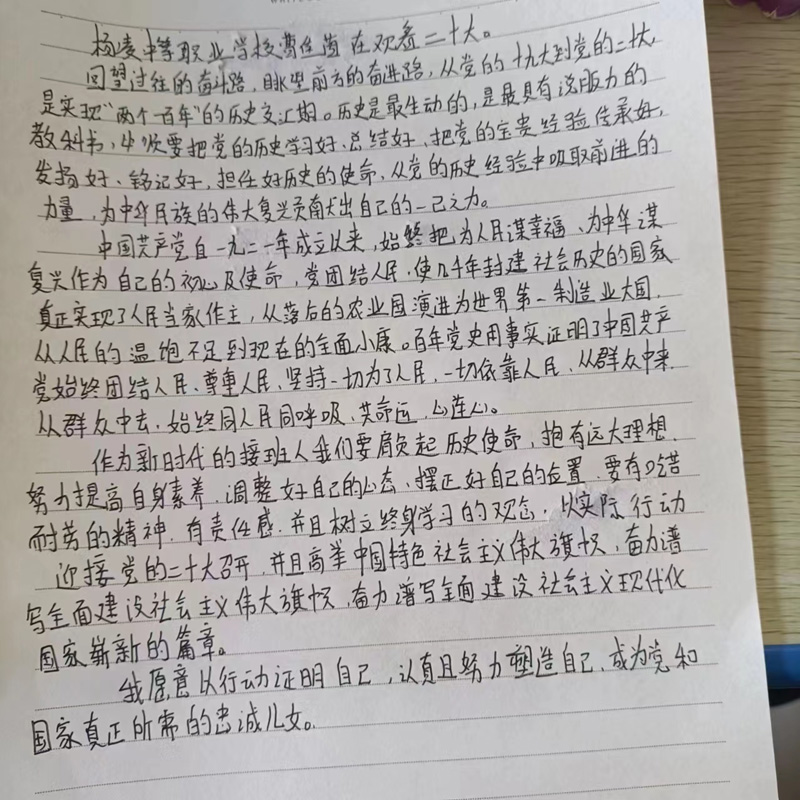 杨凌中等职业学校曹佳茵在观看二十大。
回望过往的奋斗路,眺望前方的奋进路,从党的十九大到党的二十大,
是实现"两个一百年"的历史交汇期。历史是最生动的,是最具有说服力的
教科书,必须要把党的历史学习好、总结好、把党的宝贵经验传承好,
发扬好、铭记好,担任好历史的使命,从党的历史经验中吸取前进的
力量,为中华民族的伟大复兴贡献出自己的一己之力。
中国共产党自一九二一年成立以来,始终把为人民谋幸福、为中华谋
复兴作为自己的初心及使命,党团结人民,使几千年封建社会历史的国家
真正实现了人民当家作主,从落后的农业国演进为世界第一制造业大国,
从人民的温饱不足到现在的全面小康。百年党史用事实证明了中国共产
党始终团结人民、尊重人民、坚持一切为了人民,一切依靠人民,从群众中来,
从群众中去,始终同人民同呼吸、共命运、心连心。
作为新时代的接班人我们要肩负起历史使命,抱有远大理想,
努力提高自身素养,调整好自己的心态、摆正好自己的位置,要有吃苦
耐劳的精神,有责任感,并且树立终身学习的观念,以实际行动
迎接党的二十大召开,并且高举中国特色社会主义伟大旗帜,奋力谱
写全面建设社会主义伟大旗帜,奋力谱写全面建设社会主义现代化
国家崭新的篇章。
我愿意以行动证明自己,认真且努力塑造自己,成为党和
国家真正所需的忠诚儿女。